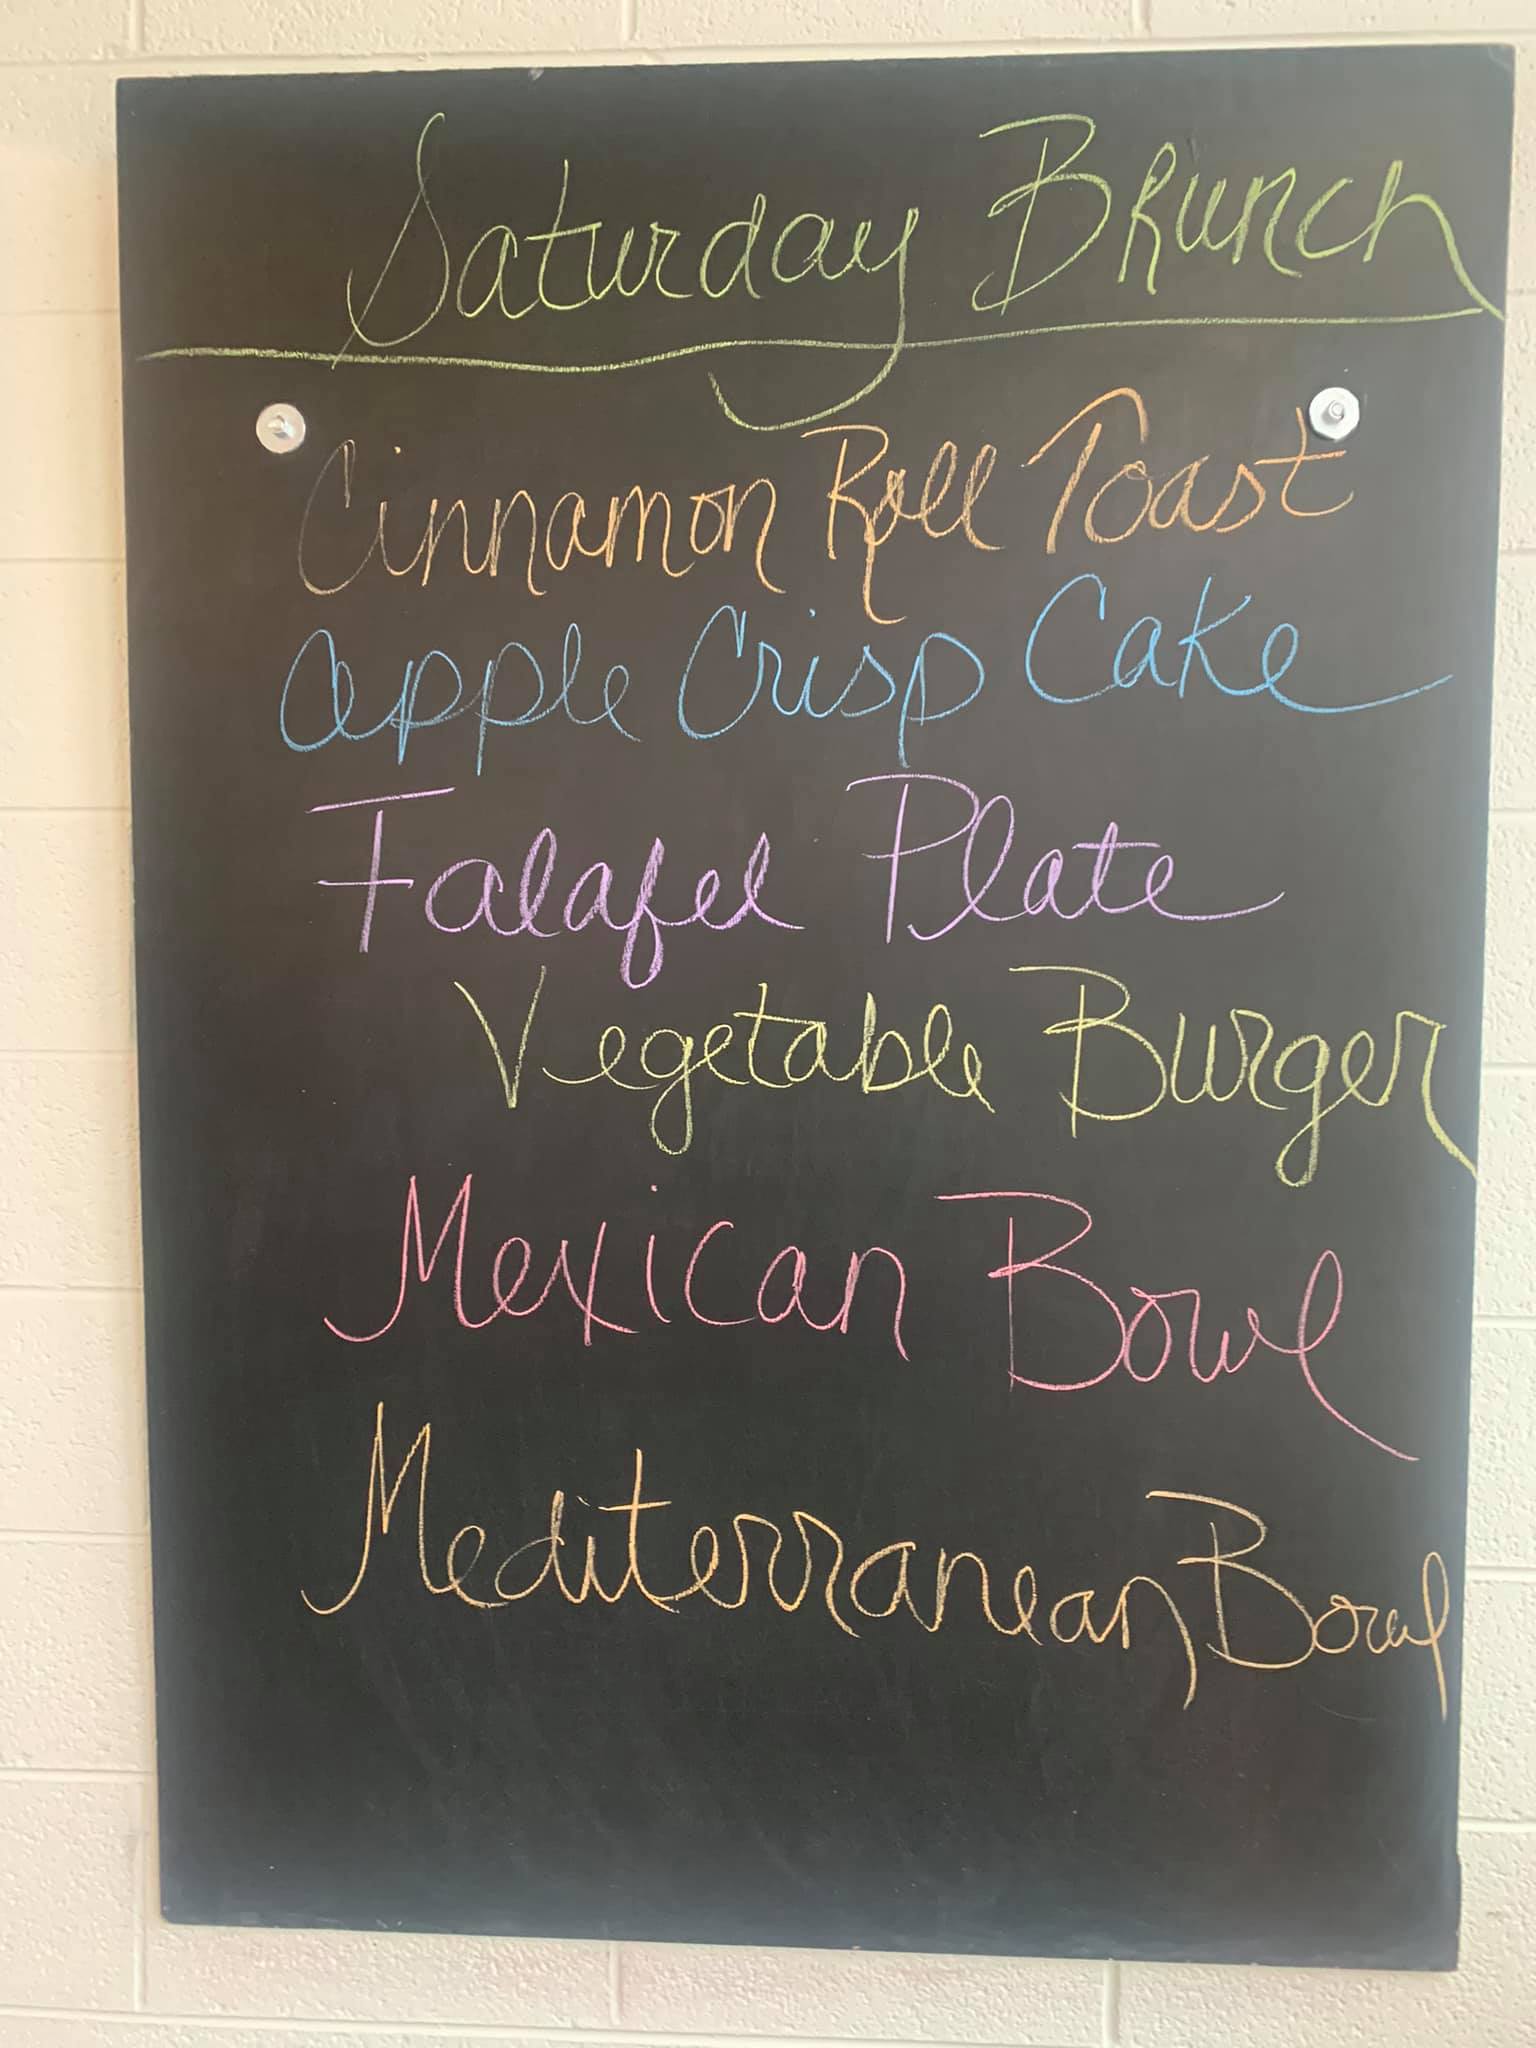 Saturday Brunch
Cinnamon Roll Toast
Apple Crisp Cake
Falafel Plate
Vegetable Burger
Mexican Bowl
Mediterranean Bowl